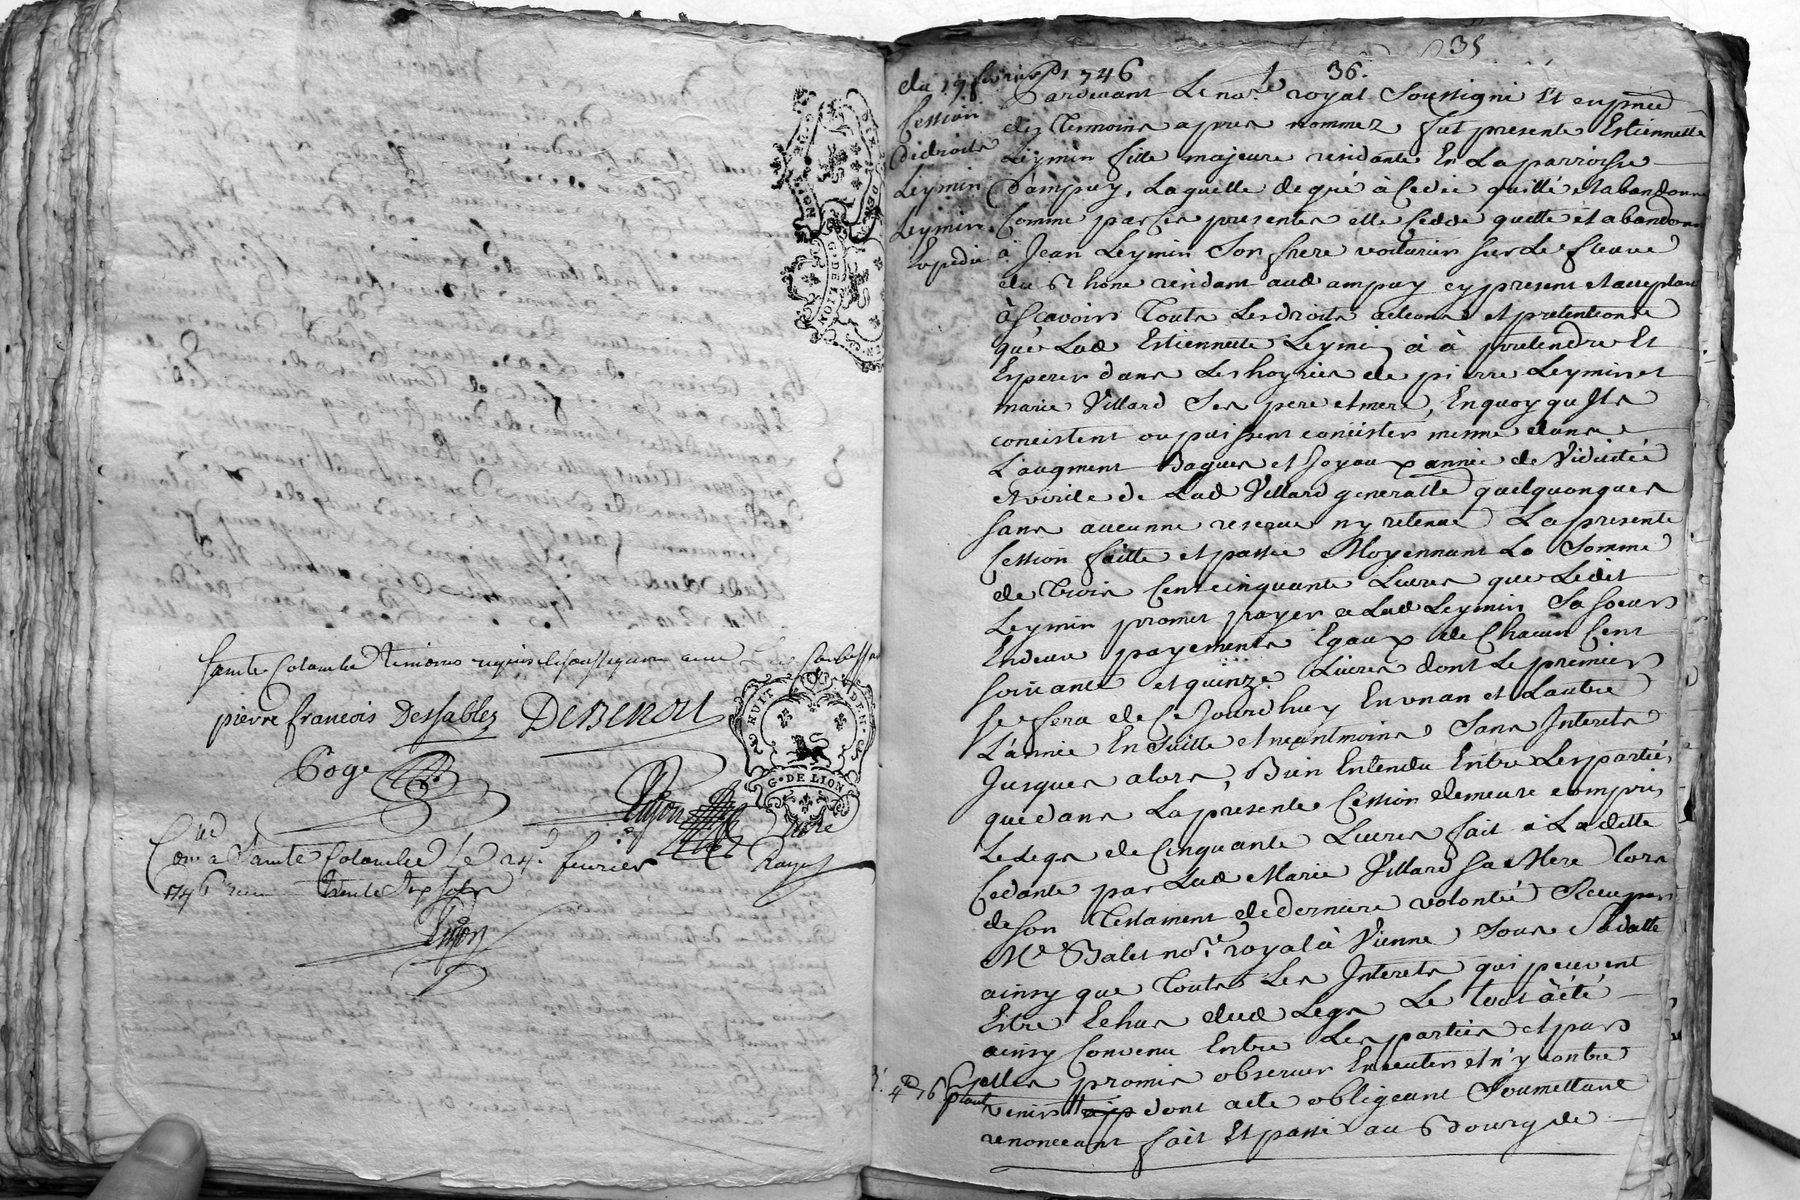 Sainte Colombe temoins requis et soussignes avec
pierre francois Dessables DeBenoit
Poge
Dujon
NUIT DEN
G. DE LION
Con.lé a Sainte Colombe le 24e fevrier
1746 recu trente six sols
Dujon
35
36.
du 19 fevrier 1746
Cession
de droits
Leymin
Leymin
expedié
Pardevant Le nore. royal Soussigné Et en pnce
des Temoins apres nommez fut presente Estiennette
Leymin fille majeure residante En La parroisse
D'ampuy, Laquelle de gré à Cedé quitté et abandonné
Comme par Ces presentes elle Cedde quitte et abandonne
à Jean Leymin Son frere voiturier sur Le fleuve
du Rhone residant aud ampuy cy present et acceptant
à Scavoir Touts Les droits actions et pretentions
que Lad Estiennette Leymin a à pretendre Et
Esperer dans Les hoyries de pierre Leymin et
marie Villard Ses pere et mere, En quoy qu'Ils
concistent ou puissent concister mesme dans
L'augment Bagues et Joyaux année de Viduité
et virile de Lad Villard generallt quelquonques
sans aucunne reserve ny retenue La presente
Cession faitte et passée Moyennant La Somme
de Trois Cent cinquante Livres que Ledit
Leymin promet payer a Lad Leymin Sa soeur
En deux payements Egaux de Chacun Cent
soixante et quinze Livres dont Le premier
se fera de Ce Jourdhuy En un an et L'autre
L'année En Suitte et neantmoins Sans Interets
Jusques alors, Bien Entendu Entre Les parties
que dans La presente Cession demeure compris
Le Legs de Cinquante Livres fait à Laditte
Cedante par Lad Marie Villard Sa Mere Lors
de son Testament de derniere volonté Receu par
Me Balet nore. royal à Vienne Sous Sa datte
ainsy que Touts Les Interets qui peuvent
Estre Echus dud Legs Le tout à été
ainsy Convenu Entre Les parties et par
Elles promis observer Executer et n'y contre
venir dont acte obligeant Soumettant
renonceant fait Et passé au Bourg de